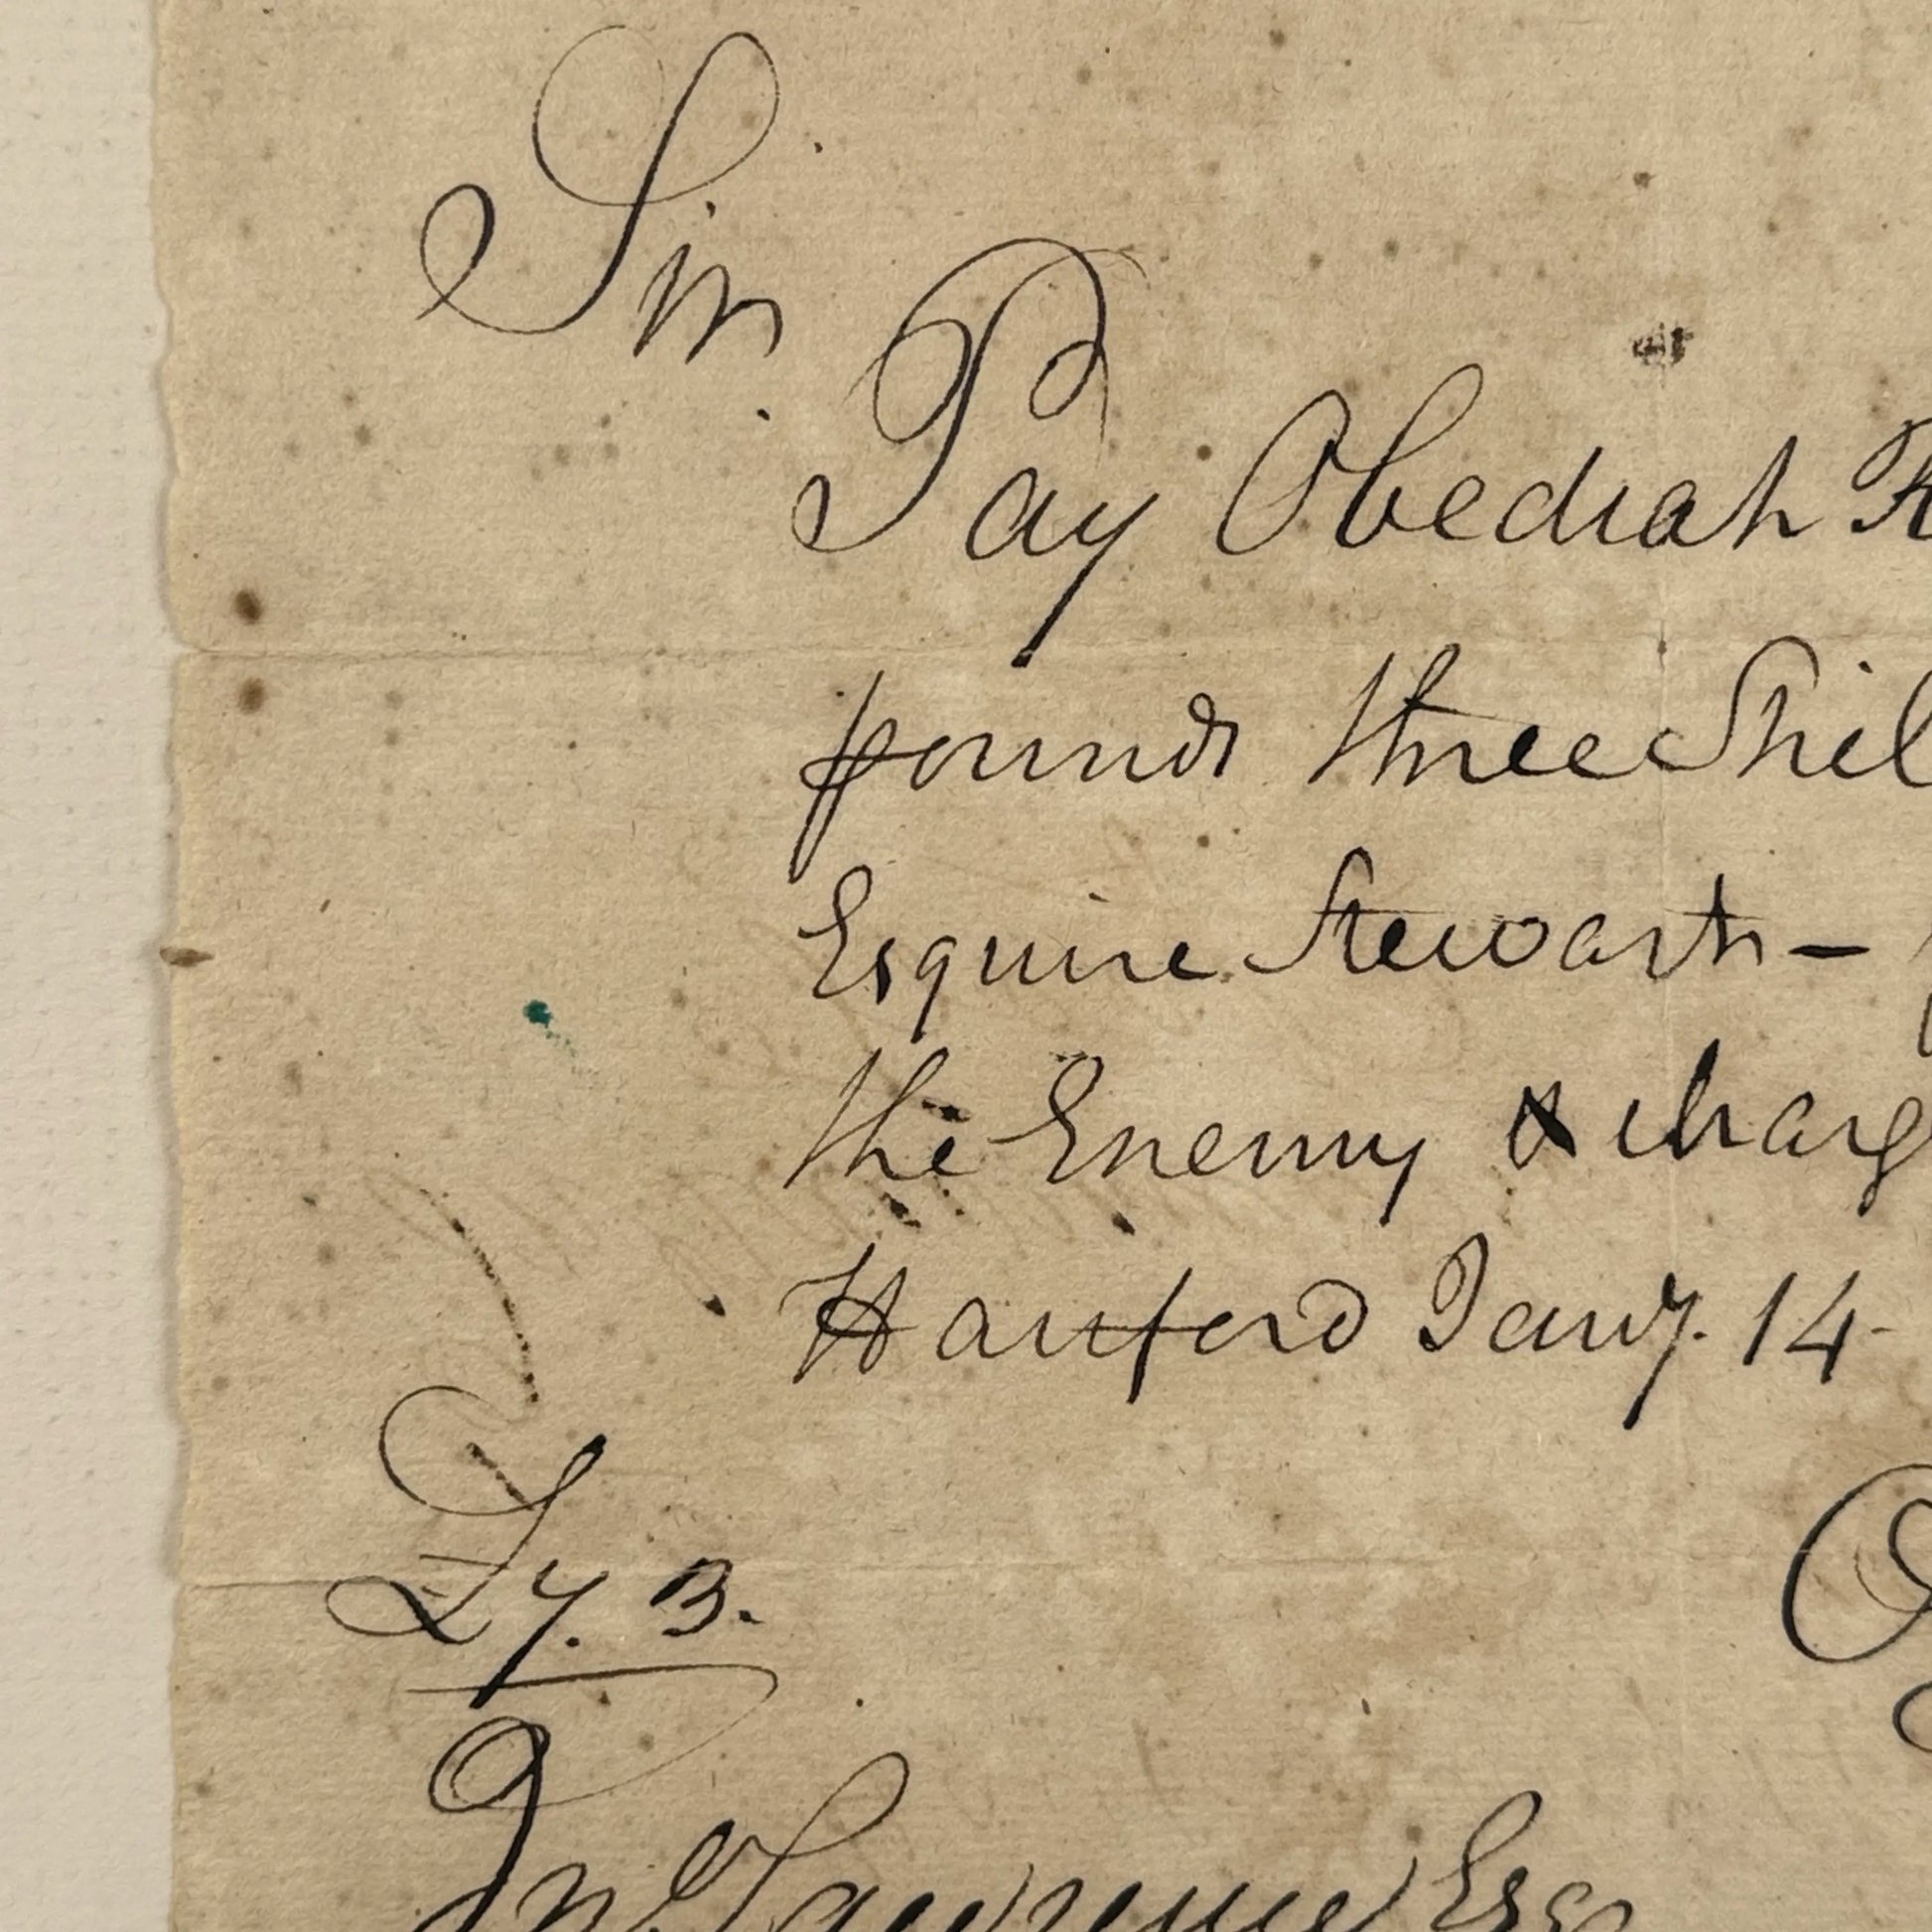 Sir
Pay Obediah
pounds three Shil
Esquire Stewarts —
the Enemy & charg
Hartford Jany. 14
£ 7. 3.
Jno Lawrence Esqr